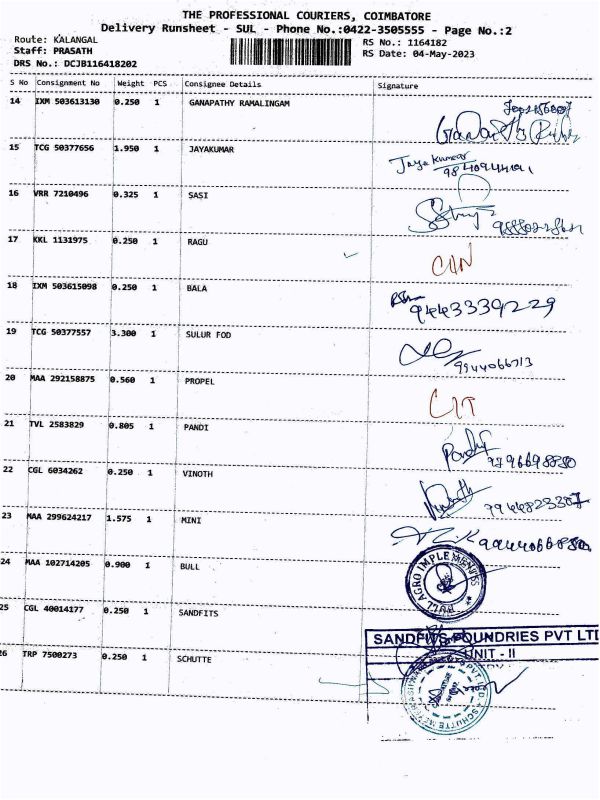 THE PROFESSIONAL COURIERS, COIMBATORE
Delivery Runsheet - SUL - Phone No.:0422-3505555 - Page No.:2
Route: KALANGAL
RS No.: 1164182
Staff: PRASATH
RS Date: 04-May-2023
DRS No.: DCJB116418202
S No Consignment No Weight PCS Consignee Details Signature
14 IXM 503613130 0.250 1 GANAPATHY RAMALINGAM
15 TCG 50377656 1.950 1 JAYAKUMAR Jayakumar
16 VRR 7210496 0.325 1 SASI
17 KKL 1131975 0.250 1 RAGU
18 IXM 503615098 0.250 1 BALA 9443339229
19 TCG 50377557 3.300 1 SULUR FOD 9944066713
20 MAA 292158875 0.560 1 PROPEL CIT
21 TVL 2583829 0.805 1 PANDI 9796698850
22 CGL 6034262 0.250 1 VINOTH
23 MAA 299624217 1.575 1 MINI
24 MAA 102714205 0.900 1 BULL BULL AGRO IMPLEMENTS
25 CGL 40014177 0.250 1 SANDFITS
SANDFITS FOUNDRIES PVT LTD
UNIT - II
26 TRP 7500273 0.250 1 SCHUTTE